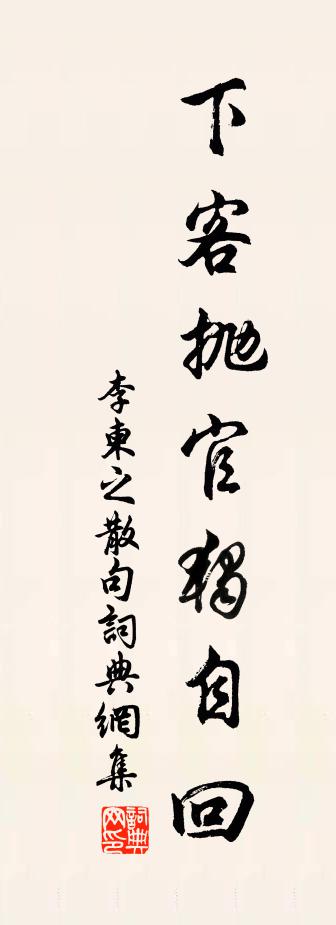 下客抛官獨自回
李東之散句詞典網集
詞典網印